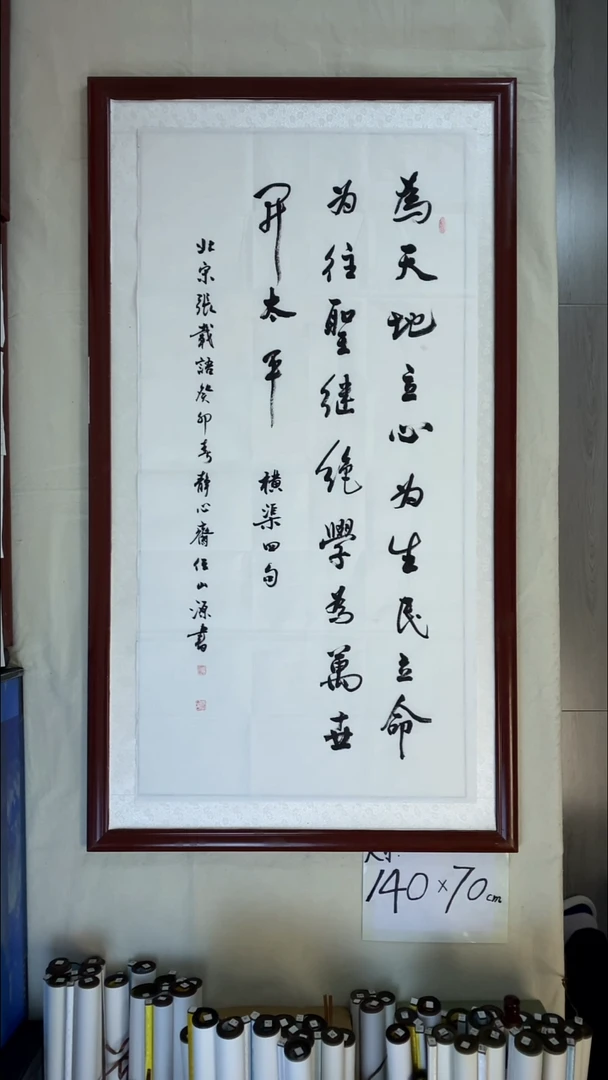 為天地立心为生民立命
为往聖继绝學为萬世
开太平
横渠四句
北宋張載語癸卯春静心齋任山源書
尺寸:
140×70cm